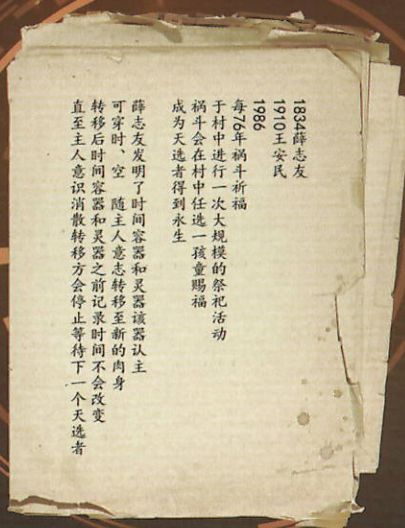 1834薛志友
1910王安民
1986
每76年祸斗祈福
于村中进行一次大规模的祭祀活动
祸斗会在村中任选一孩童赐福
成为天选者得到永生
薛志友发明了时间容器和灵器该器认主
可穿时、空 随主人意志转移至新的肉身
转移后时间容器和灵器之前记录时间不会改变
直至主人意识消散转移方会停止等待下一个天选者